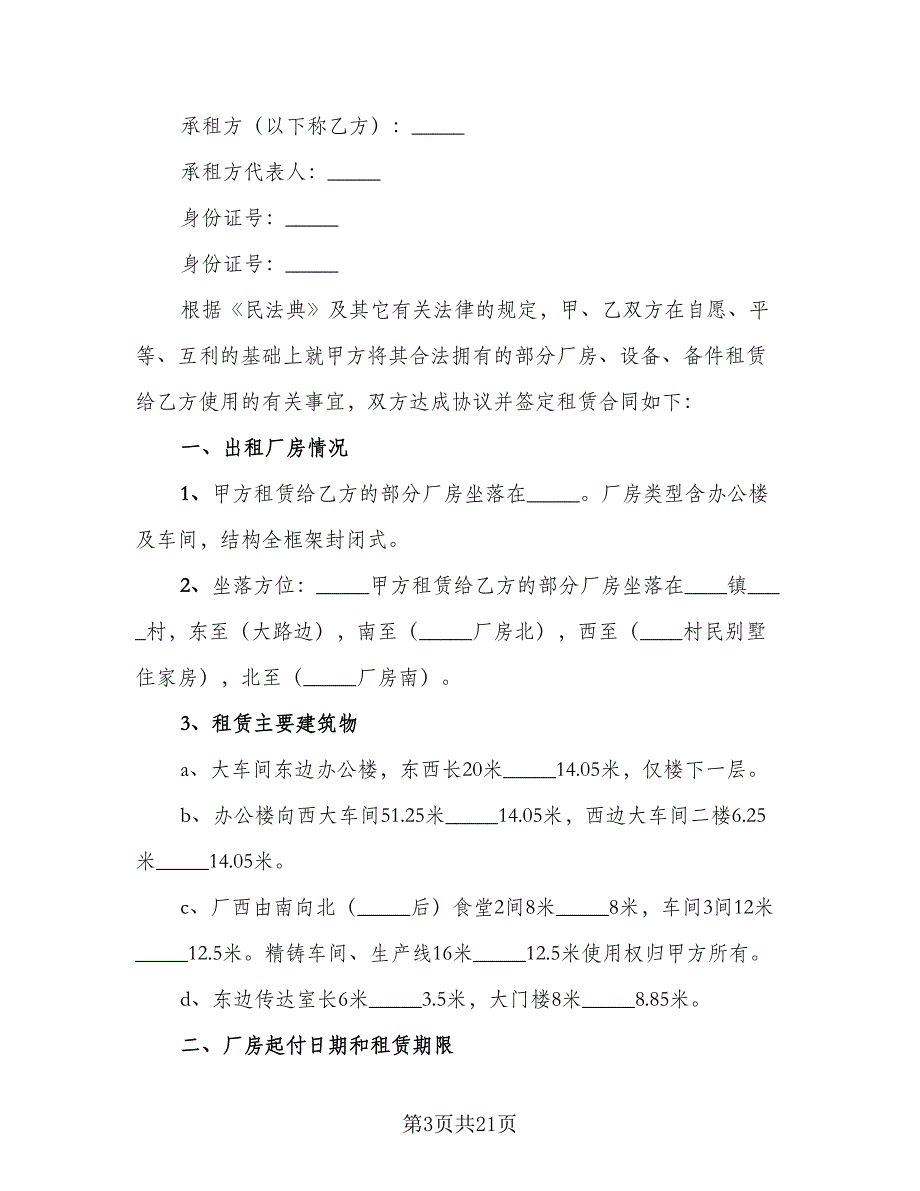 承租方（以下称乙方）：_____
承租方代表人：_____
身份证号：_____
身份证号：_____
根据《民法典》及其它有关法律的规定，甲、乙双方在自愿、平
等、互利的基础上就甲方将其合法拥有的部分厂房、设备、备件租赁
给乙方使用的有关事宜，双方达成协议并签定租赁合同如下：
一、出租厂房情况
1、甲方租赁给乙方的部分厂房坐落在_____。厂房类型含办公楼
及车间，结构全框架封闭式。
2、坐落方位：_____甲方租赁给乙方的部分厂房坐落在____镇___
_村，东至（大路边），南至（_____厂房北），西至（____村民别墅
住家房），北至（_____厂房南）。
3、租赁主要建筑物
a、大车间东边办公楼，东西长20米_____14.05米，仅楼下一层。
b、办公楼向西大车间51.25米_____14.05米，西边大车间二楼6.25
米_____14.05米。
c、厂西由南向北（_____后）食堂2间8米_____8米，车间3间12米
_____12.5米。精铸车间、生产线16米_____12.5米使用权归甲方所有。
d、东边传达室长6米_____3.5米，大门楼8米_____8.85米。
二、厂房起付日期和租赁期限
第3页共21页